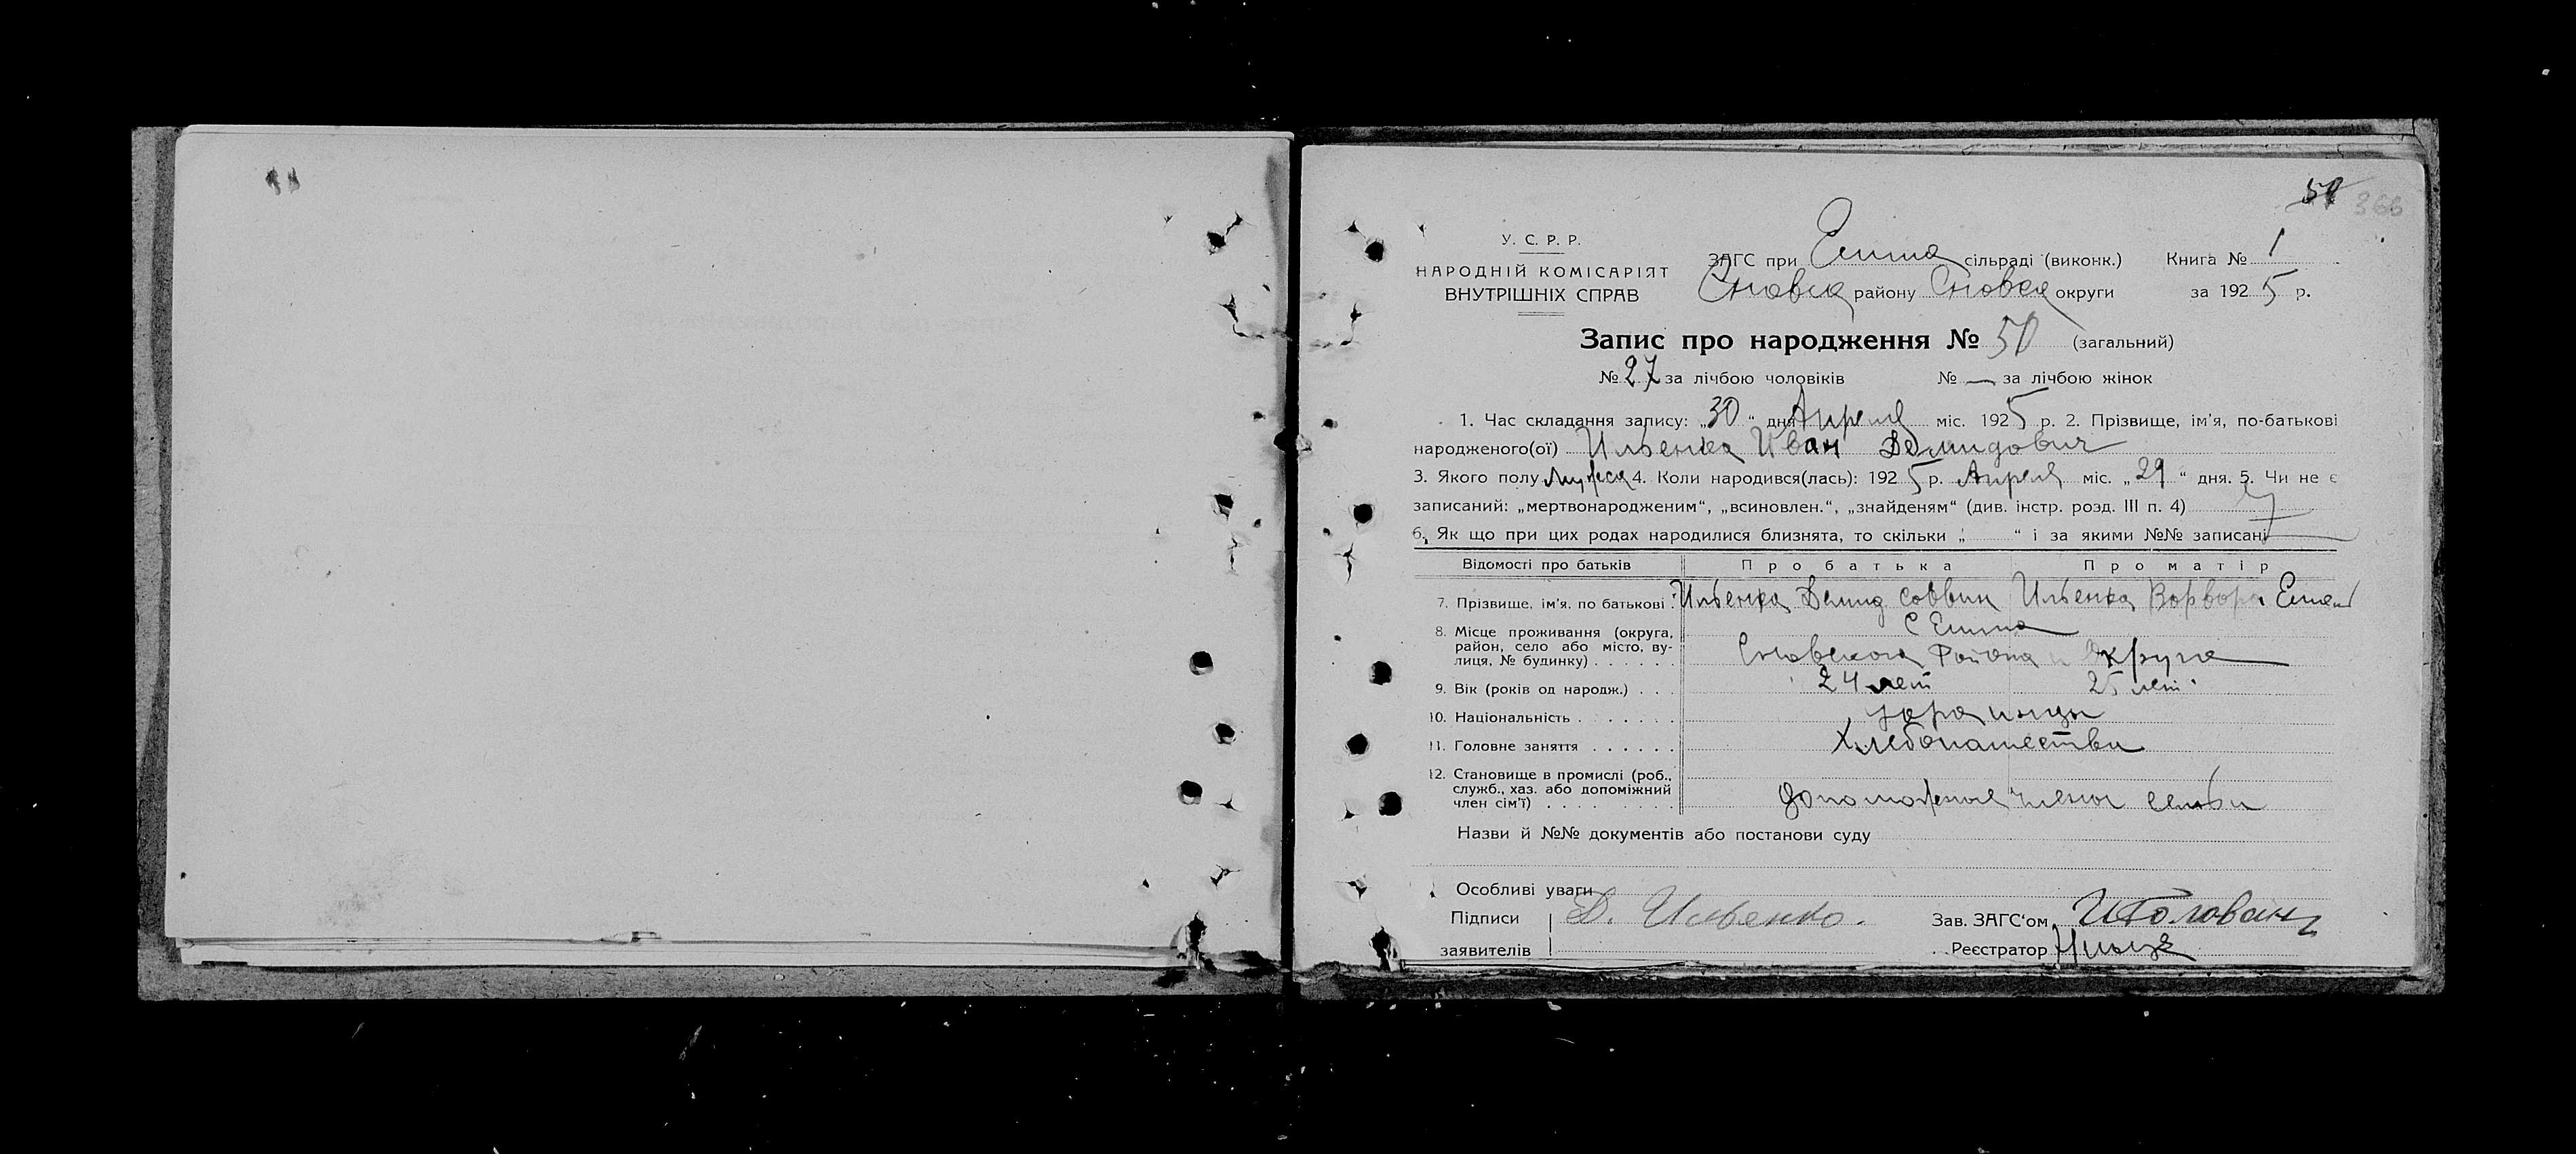 50 366
У. С. Р. Р.
НАРОДНІЙ КОМІСАРІЯТ
ВНУТРІШНІХ СПРАВ
ЗАГС при сільраді (виконк.) Книга № 1
району округи за 1925 р.
Запис про народження № 50 (загальний)
№ 27 за лічбою чоловіків № — за лічбою жінок
1. Час складання запису: „30“ дня Апреля міс. 1925 р. 2. Прізвище, ім’я, по-батькові
народженого(ої) Ильенка Иван Демидович
3. Якого полу 4. Коли народився(лась): 1925 р. Апреля міс. „29“ дня. 5. Чи не є
записаний: „мертвонародженим“, „всиновлен.“, „знайденям“ (див. інстр. розд. III п. 4)
6. Як що при цих родах народилися близнята, то скільки „ “ і за якими №№ записані
Відомості про батьків Про батька Про матір
7. Прізвище, ім’я, по батькові Ильенка Демид Саввин Ильенка Варвора
8. Місце проживання (округа,
район, село або місто, ву-
лиця, № будинку) . . . . . . Сновского Района и Округа
9. Вік (років од народж.) . . . 24 лет 25 лет
10. Національність . . . . . . . украинцы
11. Головне заняття . . . . . . Хлебопашества
12. Становище в промислі (роб.,
служб., хаз. або допоміжний
член сім’ї) . . . . . . . . . члены семьи
Назви й №№ документів або постанови суду
Особливі уваги
Підписи Д. Ильенко. Зав. ЗАГС‘ом И Голованц
заявителів Реєстратор